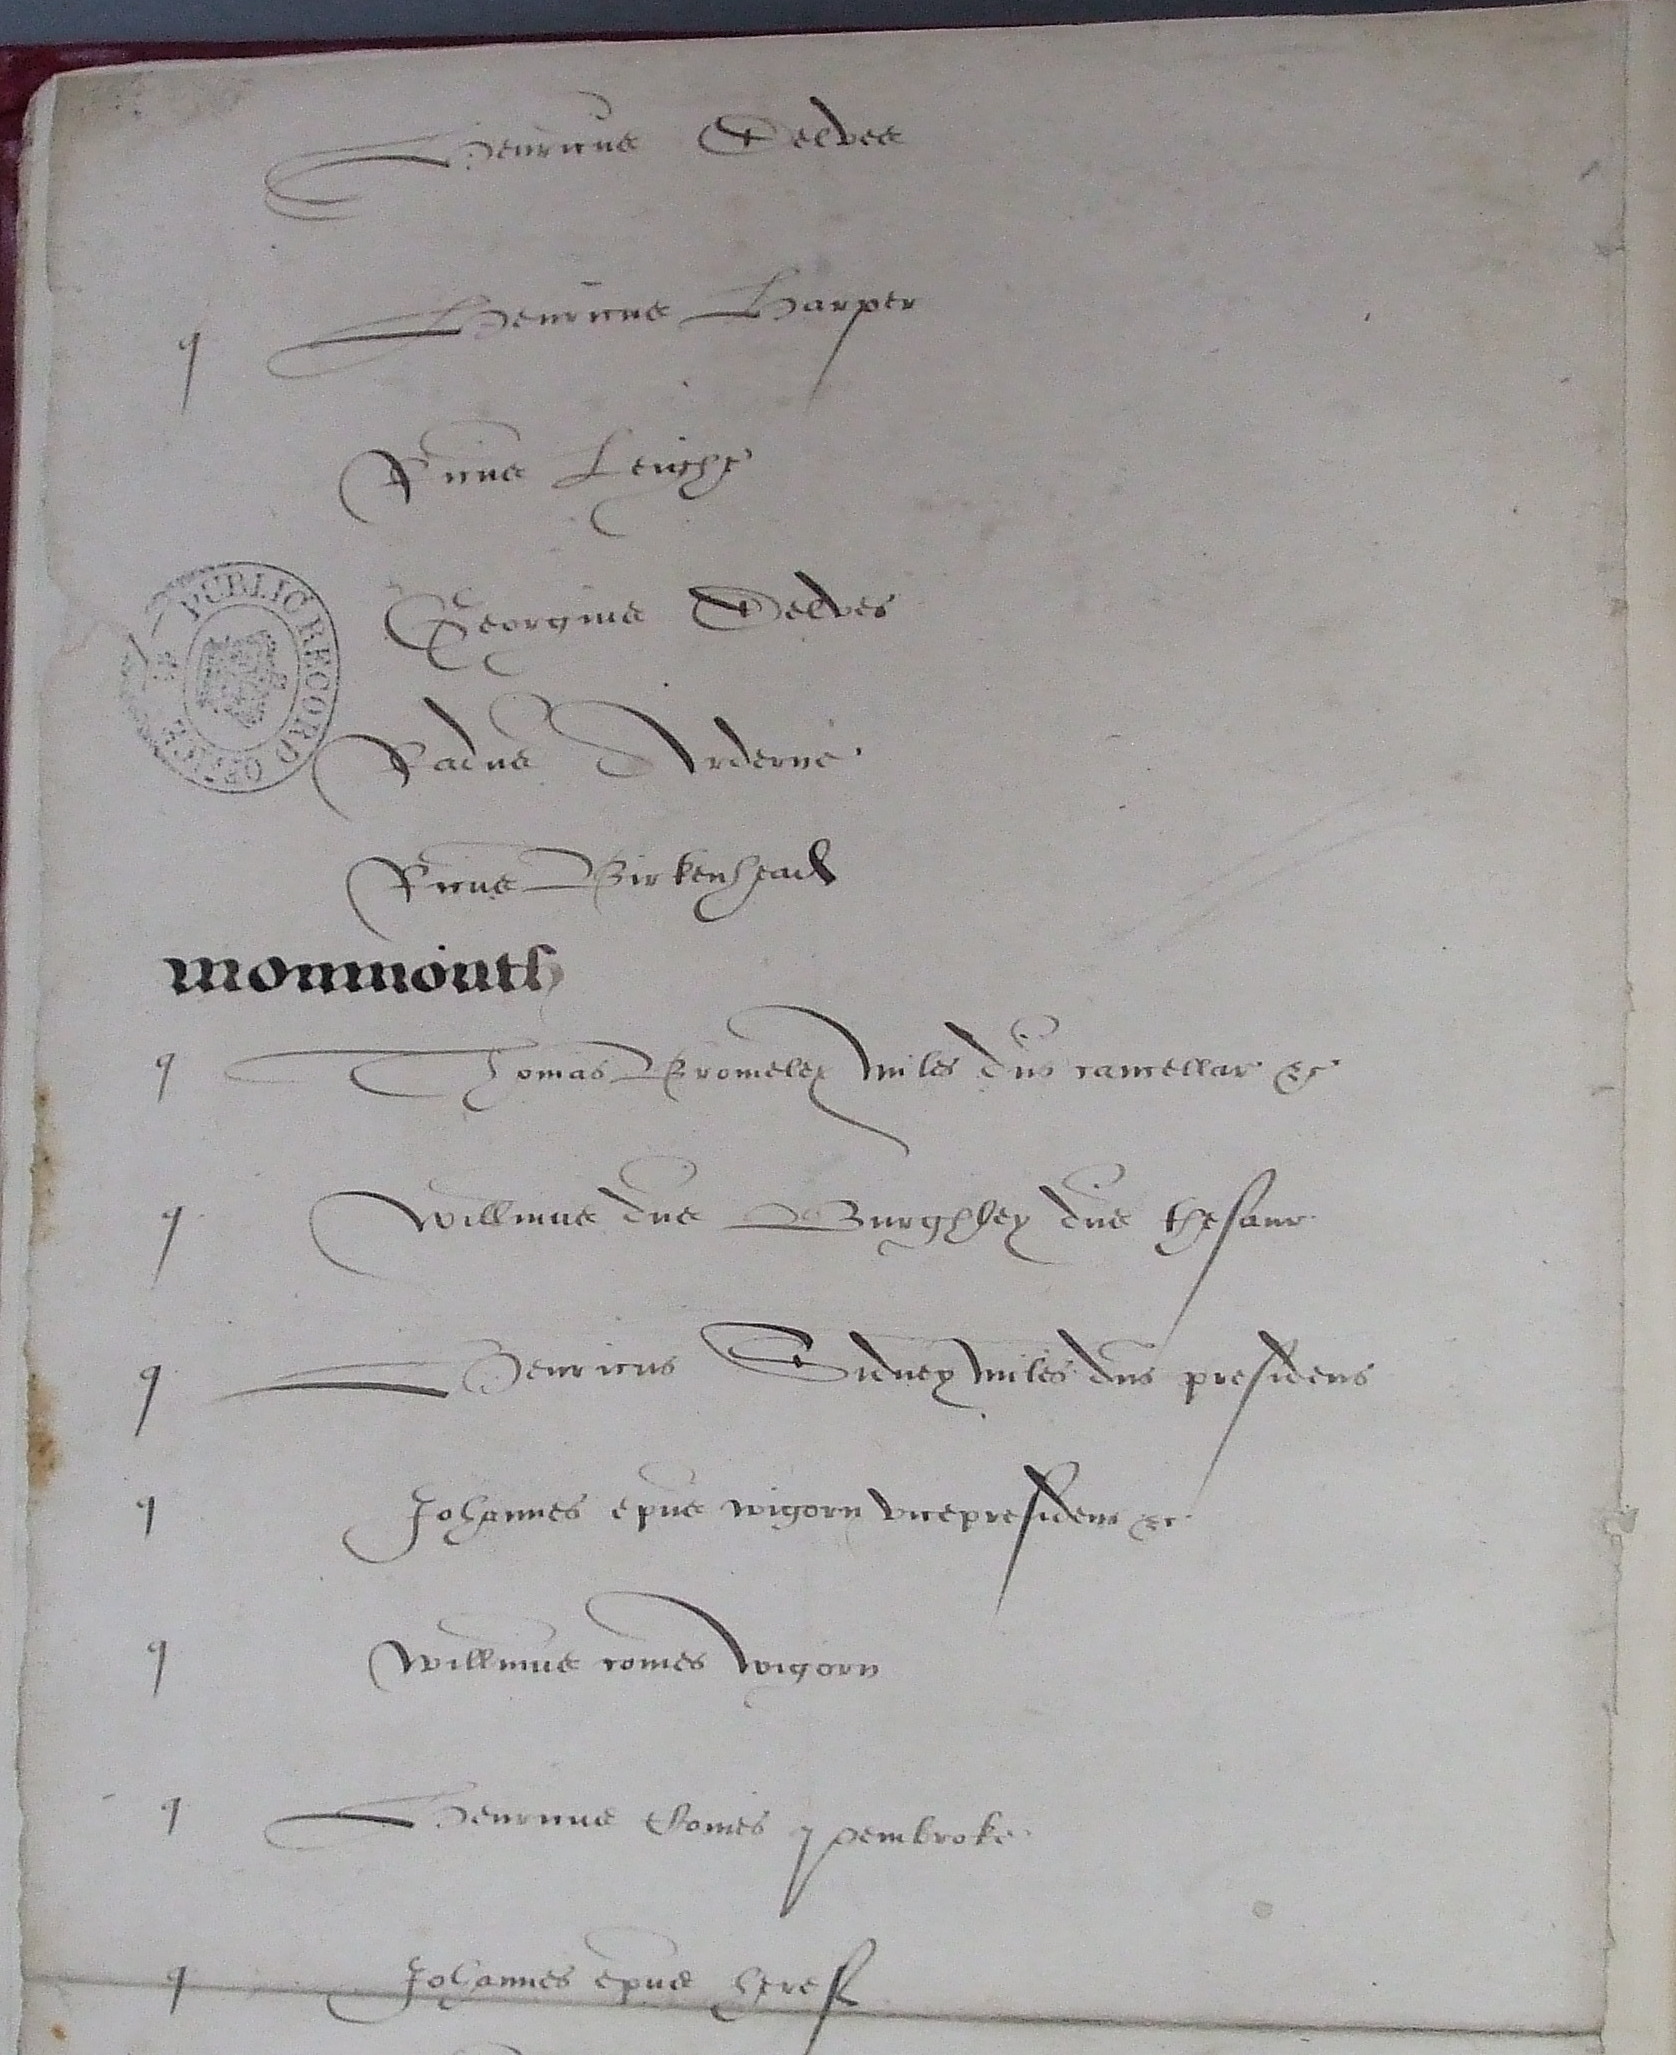 Henricus Delves
q Henricus Harper
Ricus Leighe
Georgius Delves
PUBLIC RECORD OFFICE
Radus Arderne
Ricus Birkenhead
Monmouth
q Thomas Bromeley miles dns cancellar &c
q Willmus dns Burghley dns thesaur
q Henricus Sidney miles dns presidens
q Johannes epus wigorn vicepresidens &c
q Willmus comes wigorn
q Henricus Comes Pembroke
q Johannes epus heref